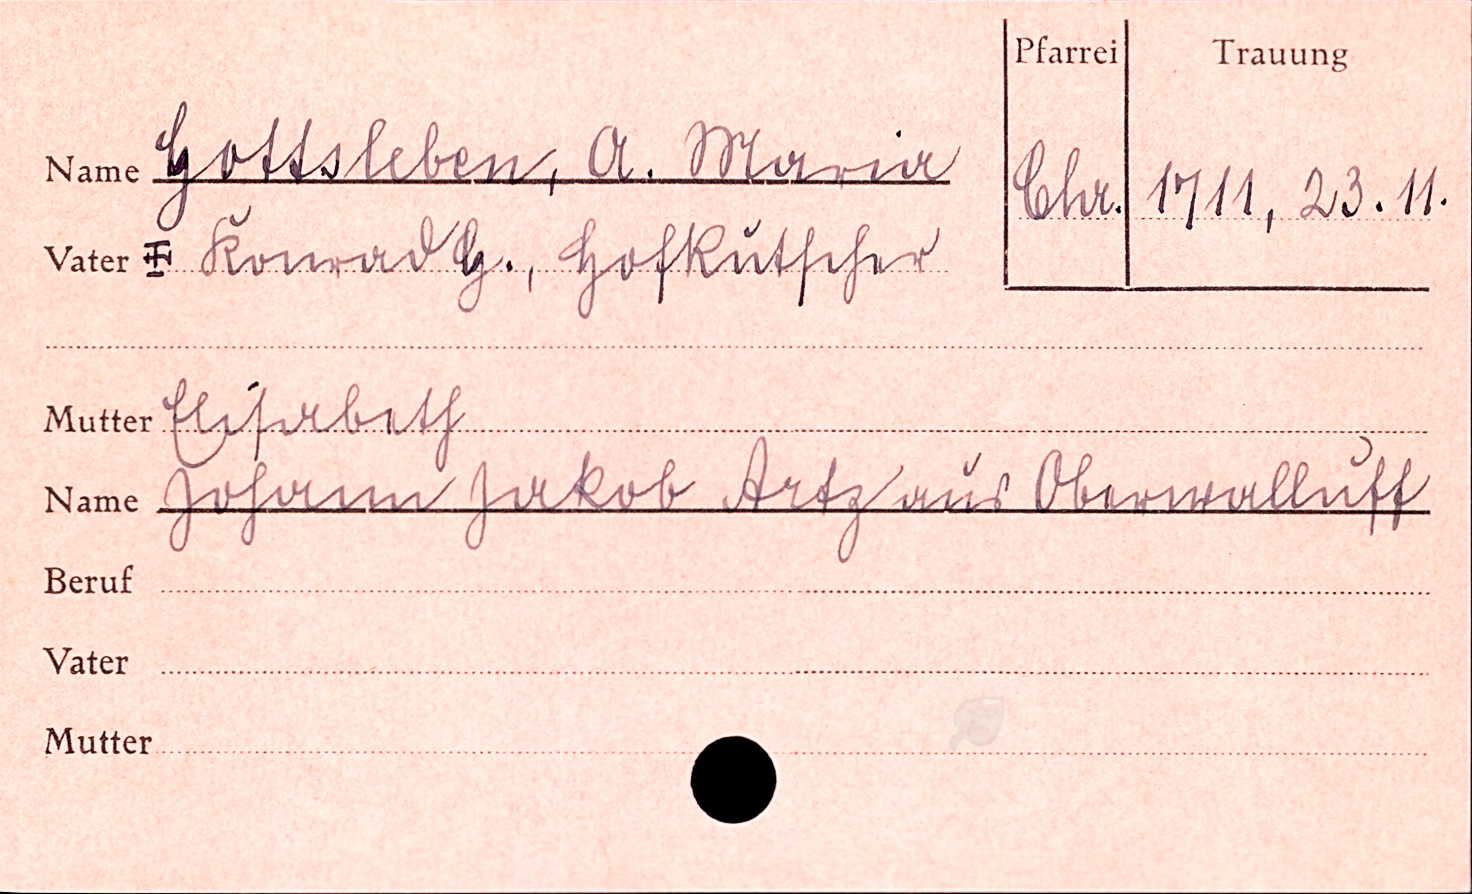 Pfarrei Trauung
Name Gottsleben, A. Maria
Chr. 1711, 23.11.
Vater Konrad G., Hofkutscher
Mutter Elisabeth
Name Johann Jakob Artz aus Oberwalluff
Beruf
Vater
Mutter